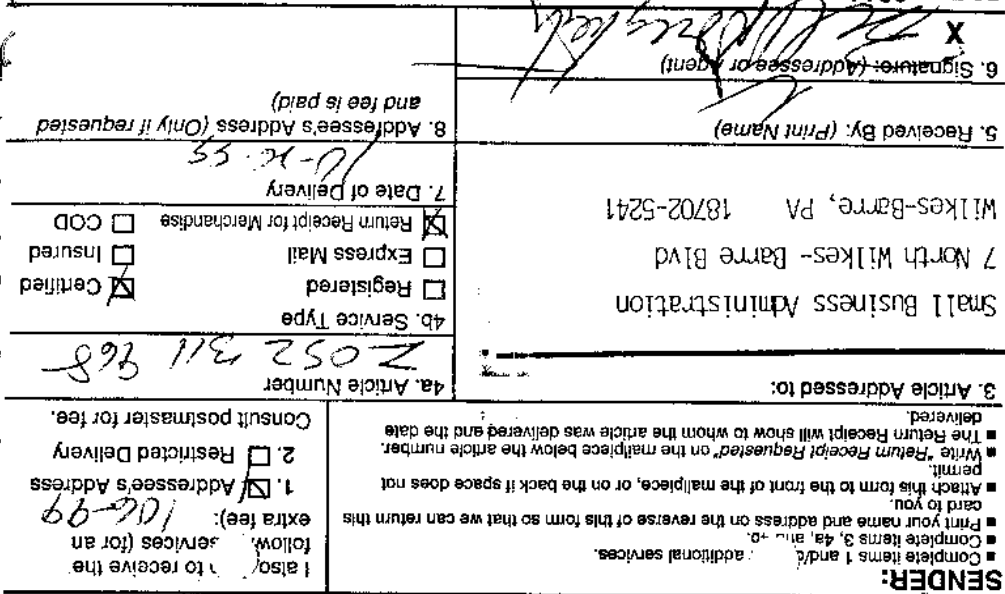 SENDER:
■ Complete items 1 and/ additional services.
■ Complete items 3, 4a,
■ Print your name and address on the reverse of this form so that we can return this
card to you.
■ Attach this form to the front of the mailpiece, or on the back if space does not
permit.
■ Write "Return Receipt Requested" on the mailpiece below the article number.
■ The Return Receipt will show to whom the article was delivered and the date
delivered.
I also to receive the
follow services (for an
extra fee):
1. ☑ Addressee's Address
2. ☐ Restricted Delivery
Consult postmaster for fee.
3. Article Addressed to:
Small Business Administration
7 North Wilkes- Barre Blvd
Wilkes-Barre, PA 18702-5241
4a. Article Number
Z 052 311 968
4b. Service Type
☐ Registered ☒ Certified
☐ Express Mail ☐ Insured
☒ Return Receipt for Merchandise ☐ COD
7. Date of Delivery
5. Received By: (Print Name)
8. Addressee's Address (Only if requested
and fee is paid)
6. Signature: (Addressee or Agent)
X